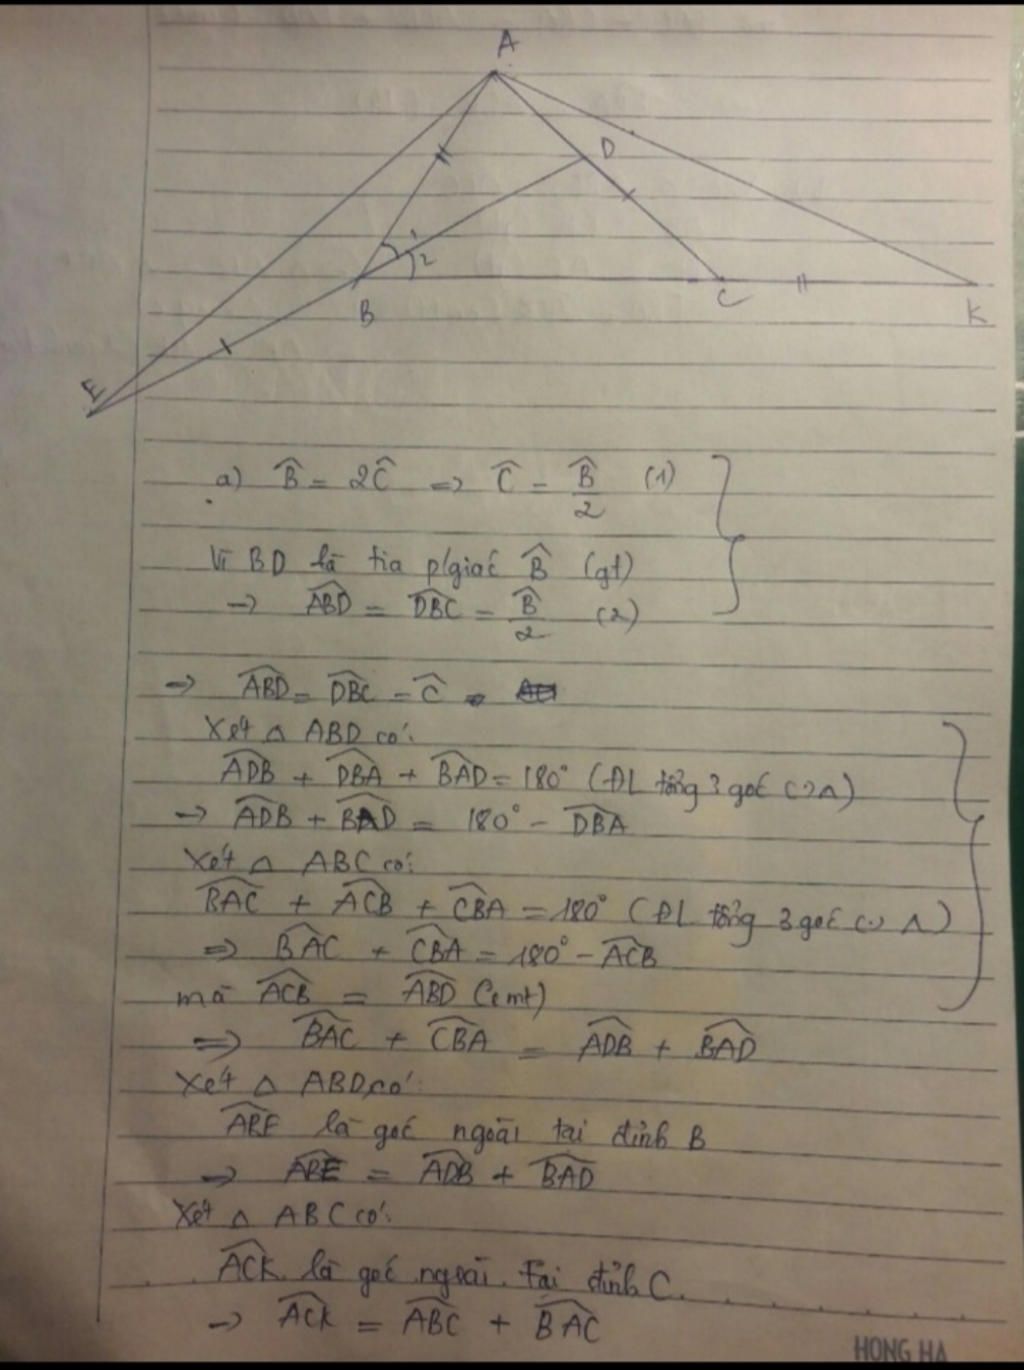 A
D
1
2
B
C
K
E
a) B̂ = 2Ĉ => Ĉ = B̂/2 (1)
Vì BD là tia p/giác B̂ (gt)
-> ABD̂ = DBĈ = B̂/2 (2)
-> ABD̂ = DBĈ = Ĉ
Xét △ ABD có:
ADB̂ + DBÂ + BAD̂ = 180° (ĐL tổng 3 góc c△)
-> ADB̂ + BAD̂ = 180° - DBÂ
Xét △ ABC có:
BAĈ + ACB̂ + CBÂ = 180° (ĐL tổng 3 góc c△)
=> BAĈ + CBÂ = 180° - ACB̂
mà ACB̂ = ABD̂ (cmt)
=> BAĈ + CBÂ = ADB̂ + BAD̂
Xét △ ABD có:
ABÊ là góc ngoài tại đỉnh B
-> ABÊ = ADB̂ + BAD̂
Xét △ ABC có:
ACK̂ là góc ngoài tại đỉnh C
-> ACK̂ = ABĈ + BAĈ
HONG HA